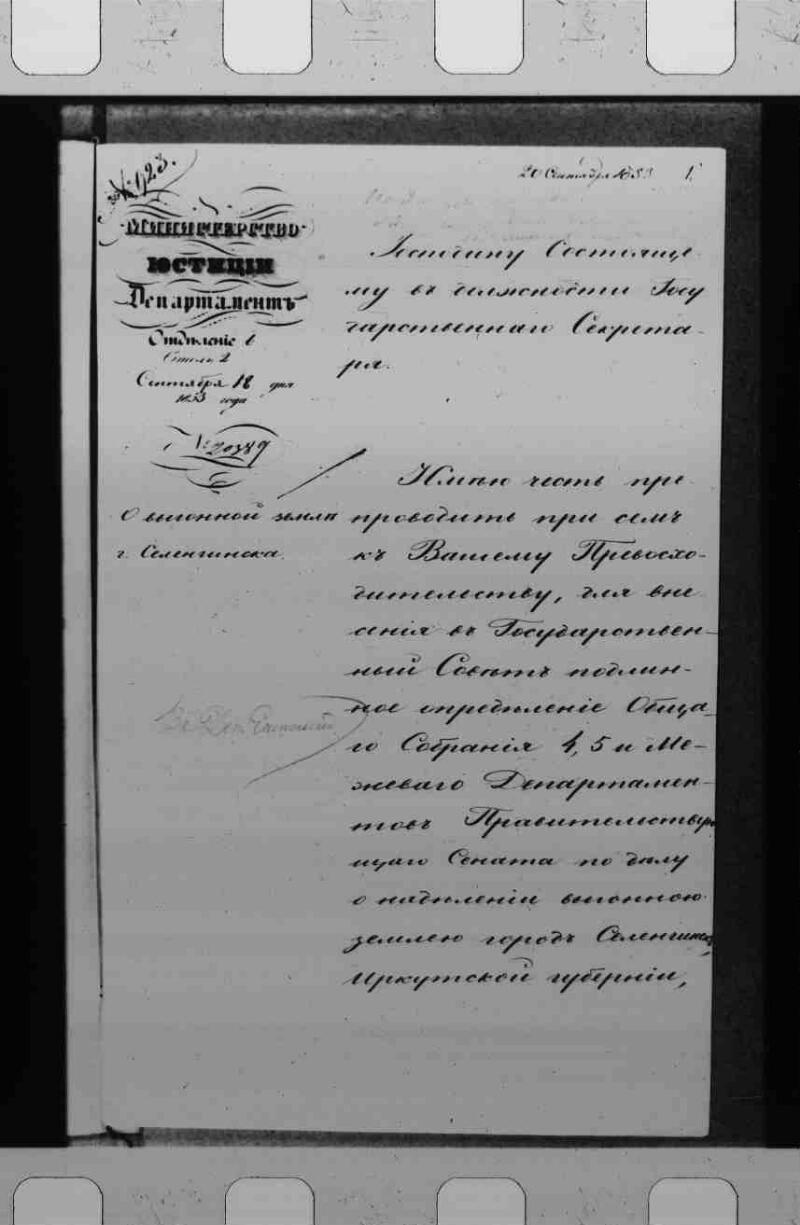 № 923.
20 Сентября 1853 1.
МИНИСТЕРСТВО
ЮСТИЦІИ
Департаментъ
Отдѣленіе
Столъ 2
Сентября 18 дня
1853 года
№ 20389
О выгонной землѣ
г. Селенгинска.
Господину Состояще-
му въ должности Госу
дарственнаго Секрета-
ря.
Имѣю честь пре
проводить при семъ
къ Вашему Превосхо-
дительству, для вне
сенія въ Государствен-
ный Совѣтъ подлин-
ное опредѣленіе Обща-
го Собранія 4, 5 и Ме-
жеваго Департамен-
товъ Правительствую
щаго Сената по дѣлу
о надѣленіи выгонною
землею городъ Селенгинскъ,
Иркутской губерніи,